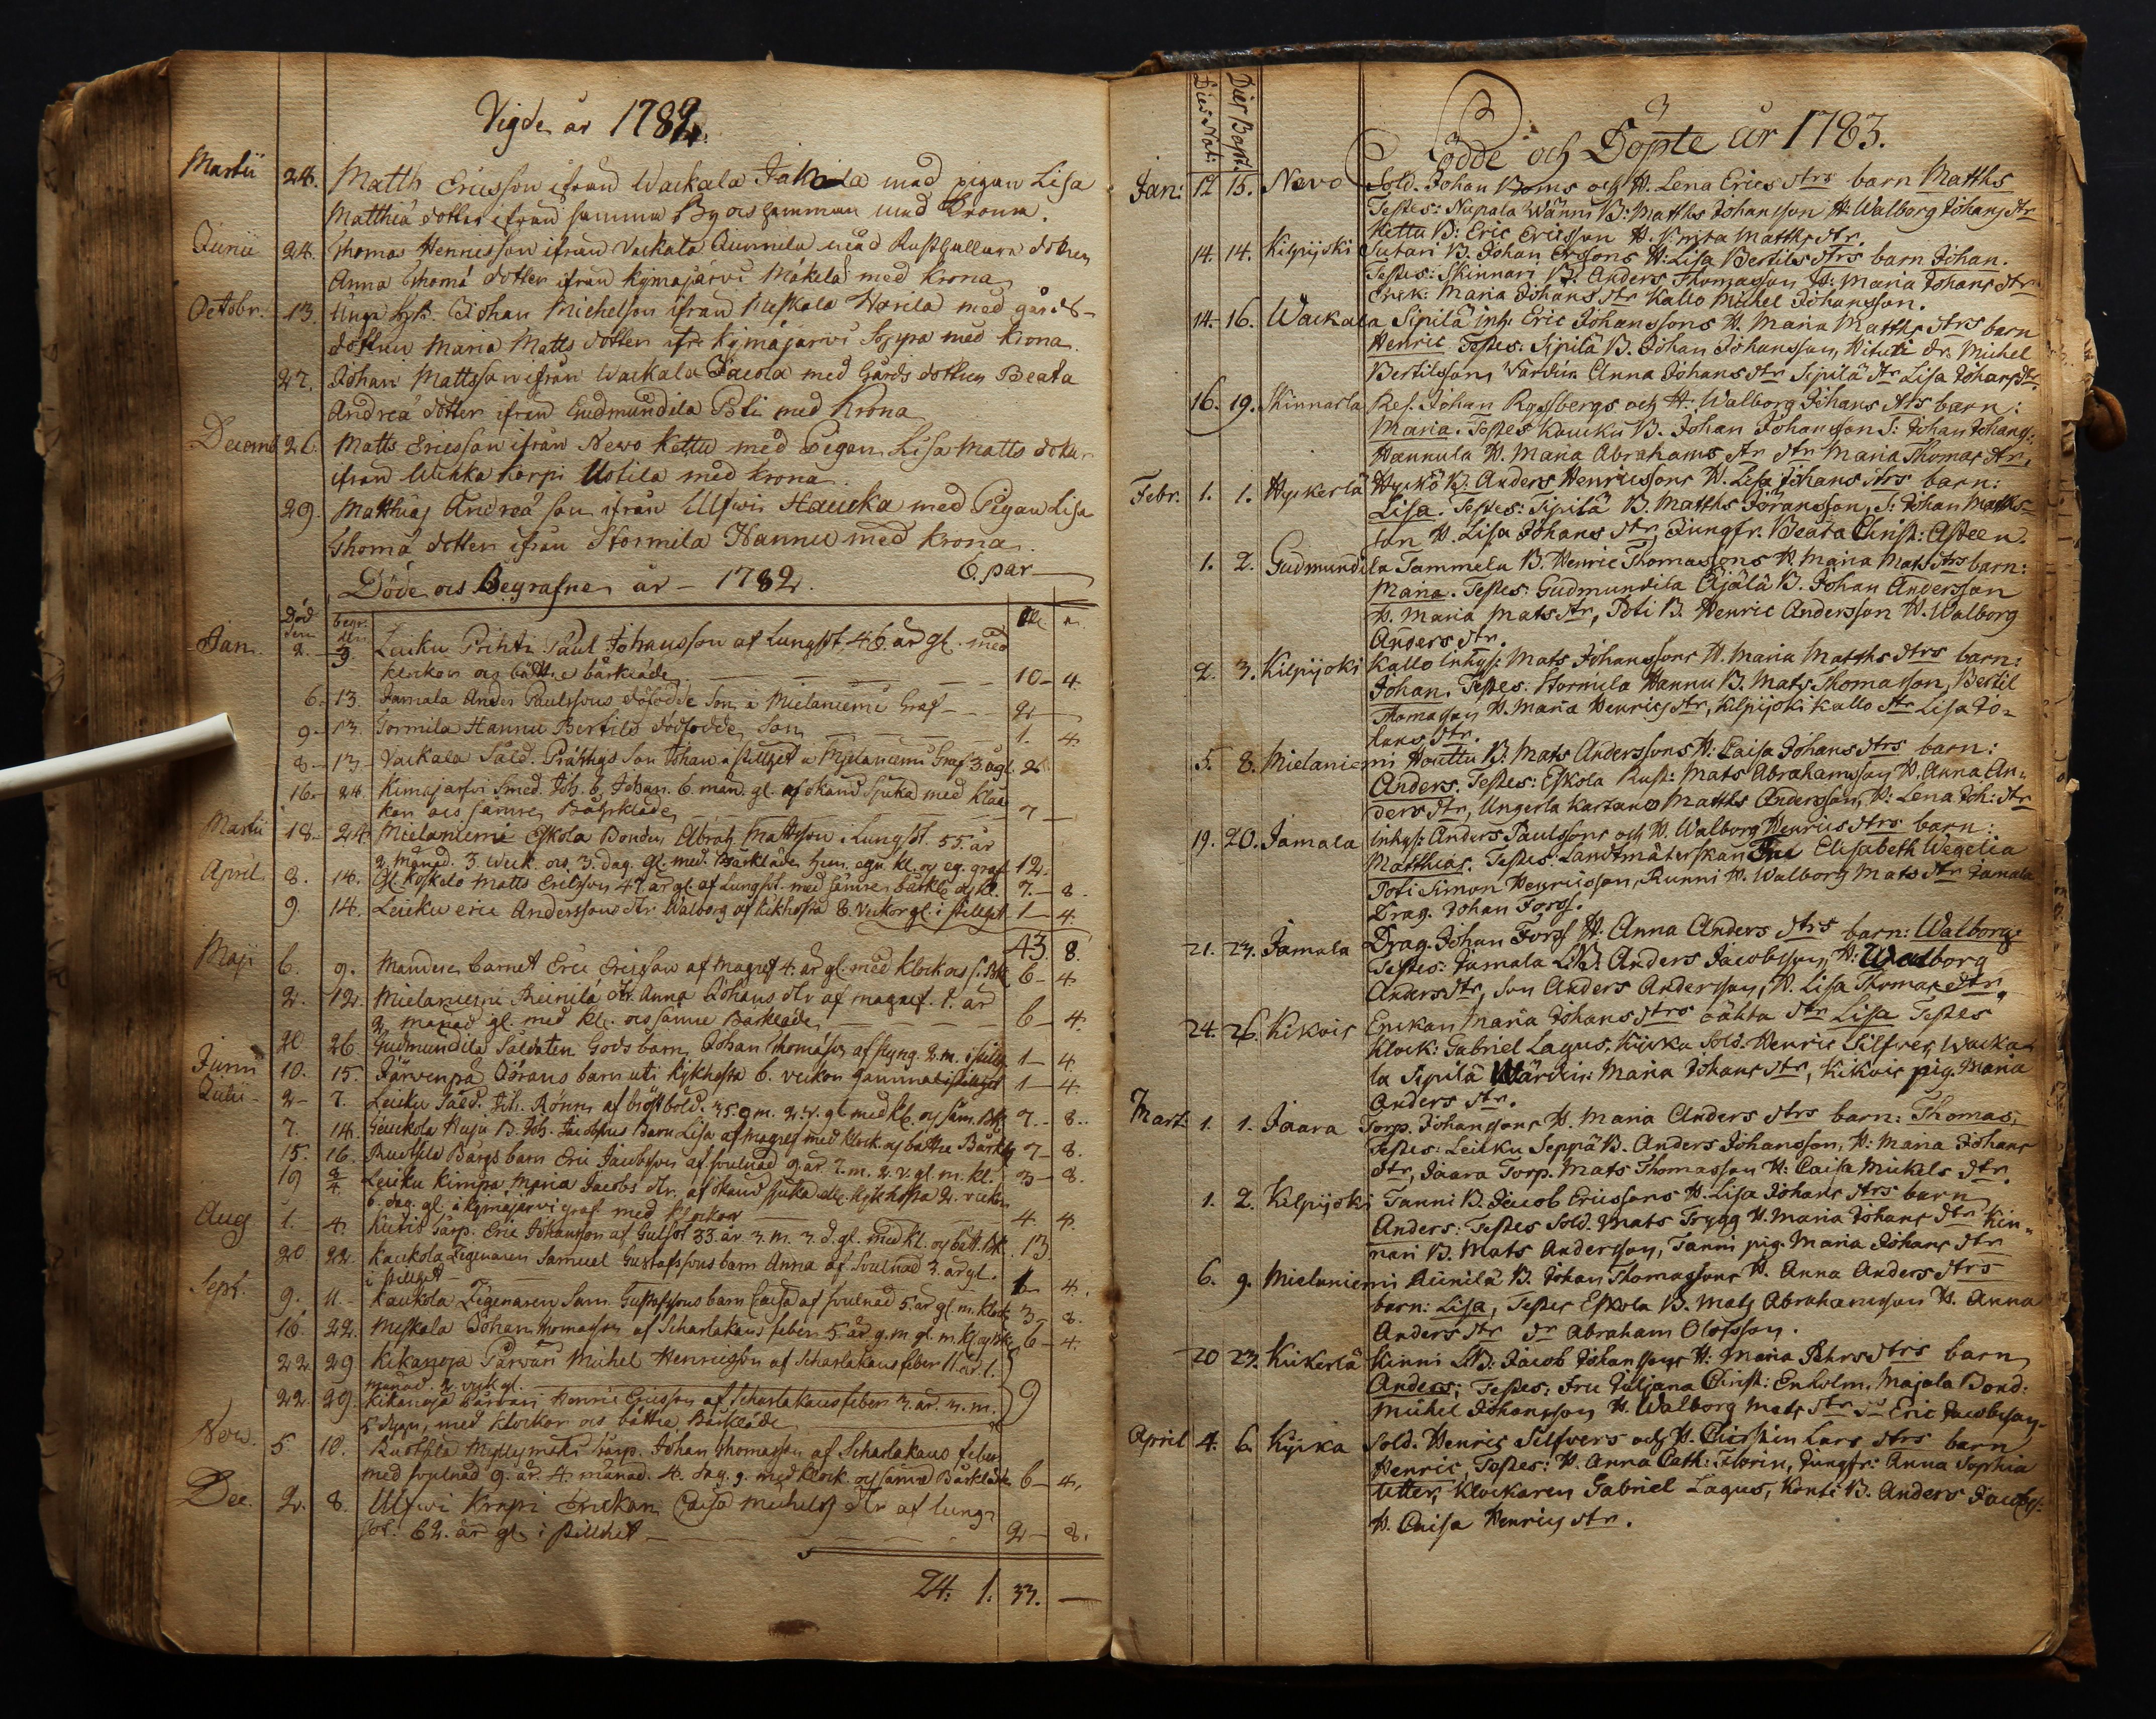 Vigde år 1782.
Martii 24. Matth Ericsson ifrån Wackala Jakola med pigan Lisa
Matthiæ dotter ifrån samma By och hemman med Krona.
Junii 24. Thomas Henricsson ifrån Vackala med Rusthållare dotter
Anna Thomæ dotter ifrån Kymäjärvi Mäkelä med Krona
Octobr. 13. Unga Johan Michelson ifrån Meskala med gårds-
dottern Maria Matts dotter ifr. Kymäjärvi Soppa med Krona.
27. Johan Mattsson ifrån Wackala Jacola med Gårds dottern Beata
Andreæ dotter ifrån Gudmundila Poti med Krona
Decemb 26. Matts Ericsson ifrån Newo Kettu med Pigan Lisa Matts doter
ifrån Uotila med krona.
29. Matthias Andreæ son ifrån Ulfwis Haucka med Pigan Lisa
Thomæ dotter ifrån Stormila Hannu med Krona.
6. par
Döde och Begrafne år - 1782.
Död den begr. den
Jan. 2. 9. Leuku Prihti Paul Johansson af Lungsot 46. år gl. med
klockor och bättre bårkläde 10 4
6. 13. Jamala Anders Paulssons dödfödde Son i Mielaniemi Graf 2
9. 13. Tormila Hannu Bertils dödfödde Son 1. 4
8 13 Vackala Sald. Son Johan i stillhet i Mielaniemi Graf 3. år gl. 2
16. 24. Kimajarfvi Smed. Joh. b. Johan. 6. mån. gl. af okänd sjuka med klåc
kor och sämre Bårkläde 7
Martii 18. 24. Mielaniemi Eskola Bonden Abrah. Mattsson i Lungsot. 55. år
2 månad. 3 week. och 3. dag. gl. med. Bårkläde hem. egn kl. och eg. graf 12.
April 8. 14. gl. Koskelo Matts Ericsson 47. år gl. af Lungsot. med sämre bårkl. och kl. 7. 8.
9. 14. Leuku Eric Anderssons dtr Walborg af kikhosta 8. veckor gl. i stillhet 1 4.
43. 8.
Maji 6. 9. barnet Eric Ericsson af Magref 4. år gl. med klock och s. Btk 6 4
2. 12. Mielaniemi Reinilä dtr Anna Johans dtr af magref. 1. år
2 månad gl. med kl. och sämre Bårkläde 6 4.
20 26. Gudmundila Saldaten Gods barn Johan Thomasson af styng. 2. m. i stillh 1 4
Junii 10. 15. Järvenpä Görans barn uti kykhosta 6. veckor gammal i stillhet 1 4.
Julii 2 7. Leuku Sald. Joh. Rönn af bröstböld. 35. 9 m. 2. v. gl med kl. och säm. Btk. 7. 8.
7. 14. B. Joh. Jacobsons Barn Lisa af magref med klock. och bättre Bårkl. 7 8.
15. 16. barn Eric Jacobsson af svulnad 9. år. 7. m. 2. v. gl. m. kl. 3 8.
19 Leuku Kimpa Maria Jacobs dtr. af okänd sjuka elle. Kykhosta 2. vecker
6. dag. gl. i Kymäjärvi graf med klockor 4. 4.
Aug 1. 4. Torp. Eric Johansson af Gulsot 33. år. 3. m. 3. d. gl. med kl. och bätt. Bk. 13
20 22. Kaukola Zigenaren Samuel Gustafssons barn Anna af Svulnad 3. år gl.
i stillhet 1 4.
Sept. 9. 11. Kaukola Zigenaren Sam. Gustafssons barn Caisa af svulnad 5. år gl. m. klock 3 8.
16. 22. Meskala Johan Thomasson af Scharlakans feber 5. år 9. m gl. m. kl och Btk 6 4.
22. 29 Kikanoja Parvari Michel Henricson af Scharlakans feber 11. år. 1.
månad. 2 vek gl.
22. 29. Kikanoja Parvari Henric Ericsson af Scharlakans feber 3. år. 3. m.
5 dygn, med klockor och bättre Bårkläde 9
Nov. 5. 10. Ruohsila Myllymäki Torp. Johan Thomasson af Scharlakans feber
med svulnad 9. år. 4. månad. 4. dag. g. med klock. och sämre Bårkläde 6 4.
Dec. 2. 8. Ulfwi Knapi Enckan Caisa Michels dtr af lung-
sot. 62. år gl i stillhet 2 8.
24. 1. 33.
Dies Nat: Dies Bapt.
Födde och Döpte år 1783.
Jan: 12 15. Nevo Sold. Johan Boms och H. Lena Erics dtrs barn Matths
Testes: Napala Wänni B: Matths Johansson H. Walborg Johans dtr
Kettu B: Eric Ericsson H. Matths dtr.
14. 14. Kilpijoki Sutari B. Johan Erssons H: Lisa Bertils dtrs barn Johan.
Testes: Skinnari B. Anders Thomasson H: Maria Johans dtr
Enck: Maria Johans dtr Kallo Michel Johansson.
14. 16. Wackala Sipilä inh. Eric Johanssons H. Maria Matths dtrs barn
Henric Testes: Sipilä B. Johan Johansson, dr. Michel
Bertilsson, Wärdin Anna Johans dtr Sipilä dtr Lisa Johans dtr.
16. 19. Skinnarla Res. Johan Rossbergs och H: Walborg Johans dtrs barn:
Maria. Testes Koucku B. Johan Johansson S: Johan Johanss:
Hannula H. Maria Abrahams dtr dtr Maria Thomas dtr.
Febr. 1. 1. Hyckerlä Hyckö B. Anders Henricssons H. Lisa Johans dtrs barn:
Lisa. Testes: Sipilä B. Matths Göransson, S: Johan Matths-
son H. Lisa Johans dtr, Jungfr. Beata Christ: Asteen.
1. 2. Gudmundila Tammela B. Henric Thomassons H. Maria Mats dtrs barn:
Maria. Testes: Gudmundila Äjälä B. Johan Andersson
H. Maria Mats dtr, Poti B. Henric Andersson H. Walborg
Anders dtr.
2. 3. Kilpijoki Kallo Inhys: Mats Johanssons H. Maria Matths dtrs barn:
Johan. Testes: Stormila Hannu B. Mats Thomasson, Bertil
Thomasson H. Maria Henrics dtr, Kilpijoki Kallo dtr Lisa Jo-
hans dtr.
5. 8. Mielaniemi Houttu B. Mats Anderssons H: Caisa Johans dtrs barn:
Anders. Testes: Eskola Rust: Mats Abrahamsson H. Anna An-
ders dtr, Ungerla Kartano Matths Andersson, H: Lena Joh: dtr
19. 20. Jamala inhys: Anders Paulssons och H. Walborg Henrics dtrs barn:
Matthias. Testes: Landtmäterskan Fru Elisabeth Wegelia
Poti Simon Henricsson, Runni H. Walborg Mats dtr Jamala
Drag. Johan Forss.
21. 23. Jamala Drag. Johan Forss H. Anna Anders dtrs barn: Walborg
Testes: Jamala LB: Anders Jacobsson, H: Walborg
Anders dtr, Son Anders Andersson, H. Lisa Thomas dtr.
24. 26. Kikois Enckan Maria Johans dtrs oäkta dtr Lisa Testes
Klock: Gabriel Lagus, Kijcka Sold. Henric Silfver, Wacka-
la Sipilä Wärdin: Maria Johans dtr, Kikois pig. Maria
Anders dtr.
Mart: 1. 1. Jaara Torp. Johanssons H. Maria Anders dtrs barn: Thomas,
Testes: Leuku Seppä B. Anders Johansson, H: Maria Johans
dtr, Jaara Torp. Mats Thomasson H: Caisa Mickels dtr.
1. 2. Kilpijoki Tanni B. Jacob Ericssons H. Lisa Johans dtrs barn
Anders: Testes Sold. Mats Trygg H. Maria Johans dtr Kin-
nari B. Mats Andersson, Tanni pig. Maria Johans dtr
6. 9. Mielaniemi Riinilä B. Johan Thomassons H. Anna Anders dtrs
barn: Lisa, Testes Eskola B. Mats Abrahamsson H. Anna
Anders dtr dr Abraham Olofsson.
20 23. Kukerlä Kinni LB: Jacob Johanssons H: Maria Pehrs dtrs barn
Anders; Testes: Fru Juljana Christ: Enholm, Majala Bond:
Michel Johansson H. Walborg Mats dtr Eric Jacobsson.
April 4. 6. Kijcka Sold. Henric Silfvers och H. Christin Lars dtrs barn
Henric, Testes: H. Anna Cath: Florin, Jungfr: Anna Sophia
Utter, Klockaren Gabriel Lagus, Konti B. Anders Jacobss:
H. Caisa Henrics dtr.